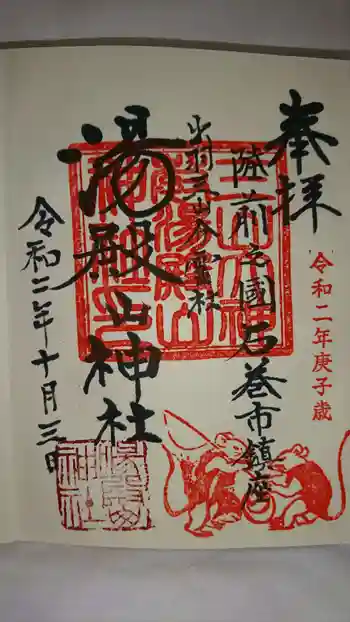 奉拝
令和二年庚子歳
陸前之國石巻市鎮座
出羽三山分霊社
湯殿山神社
令和二年十月三日
湯殿山
神社